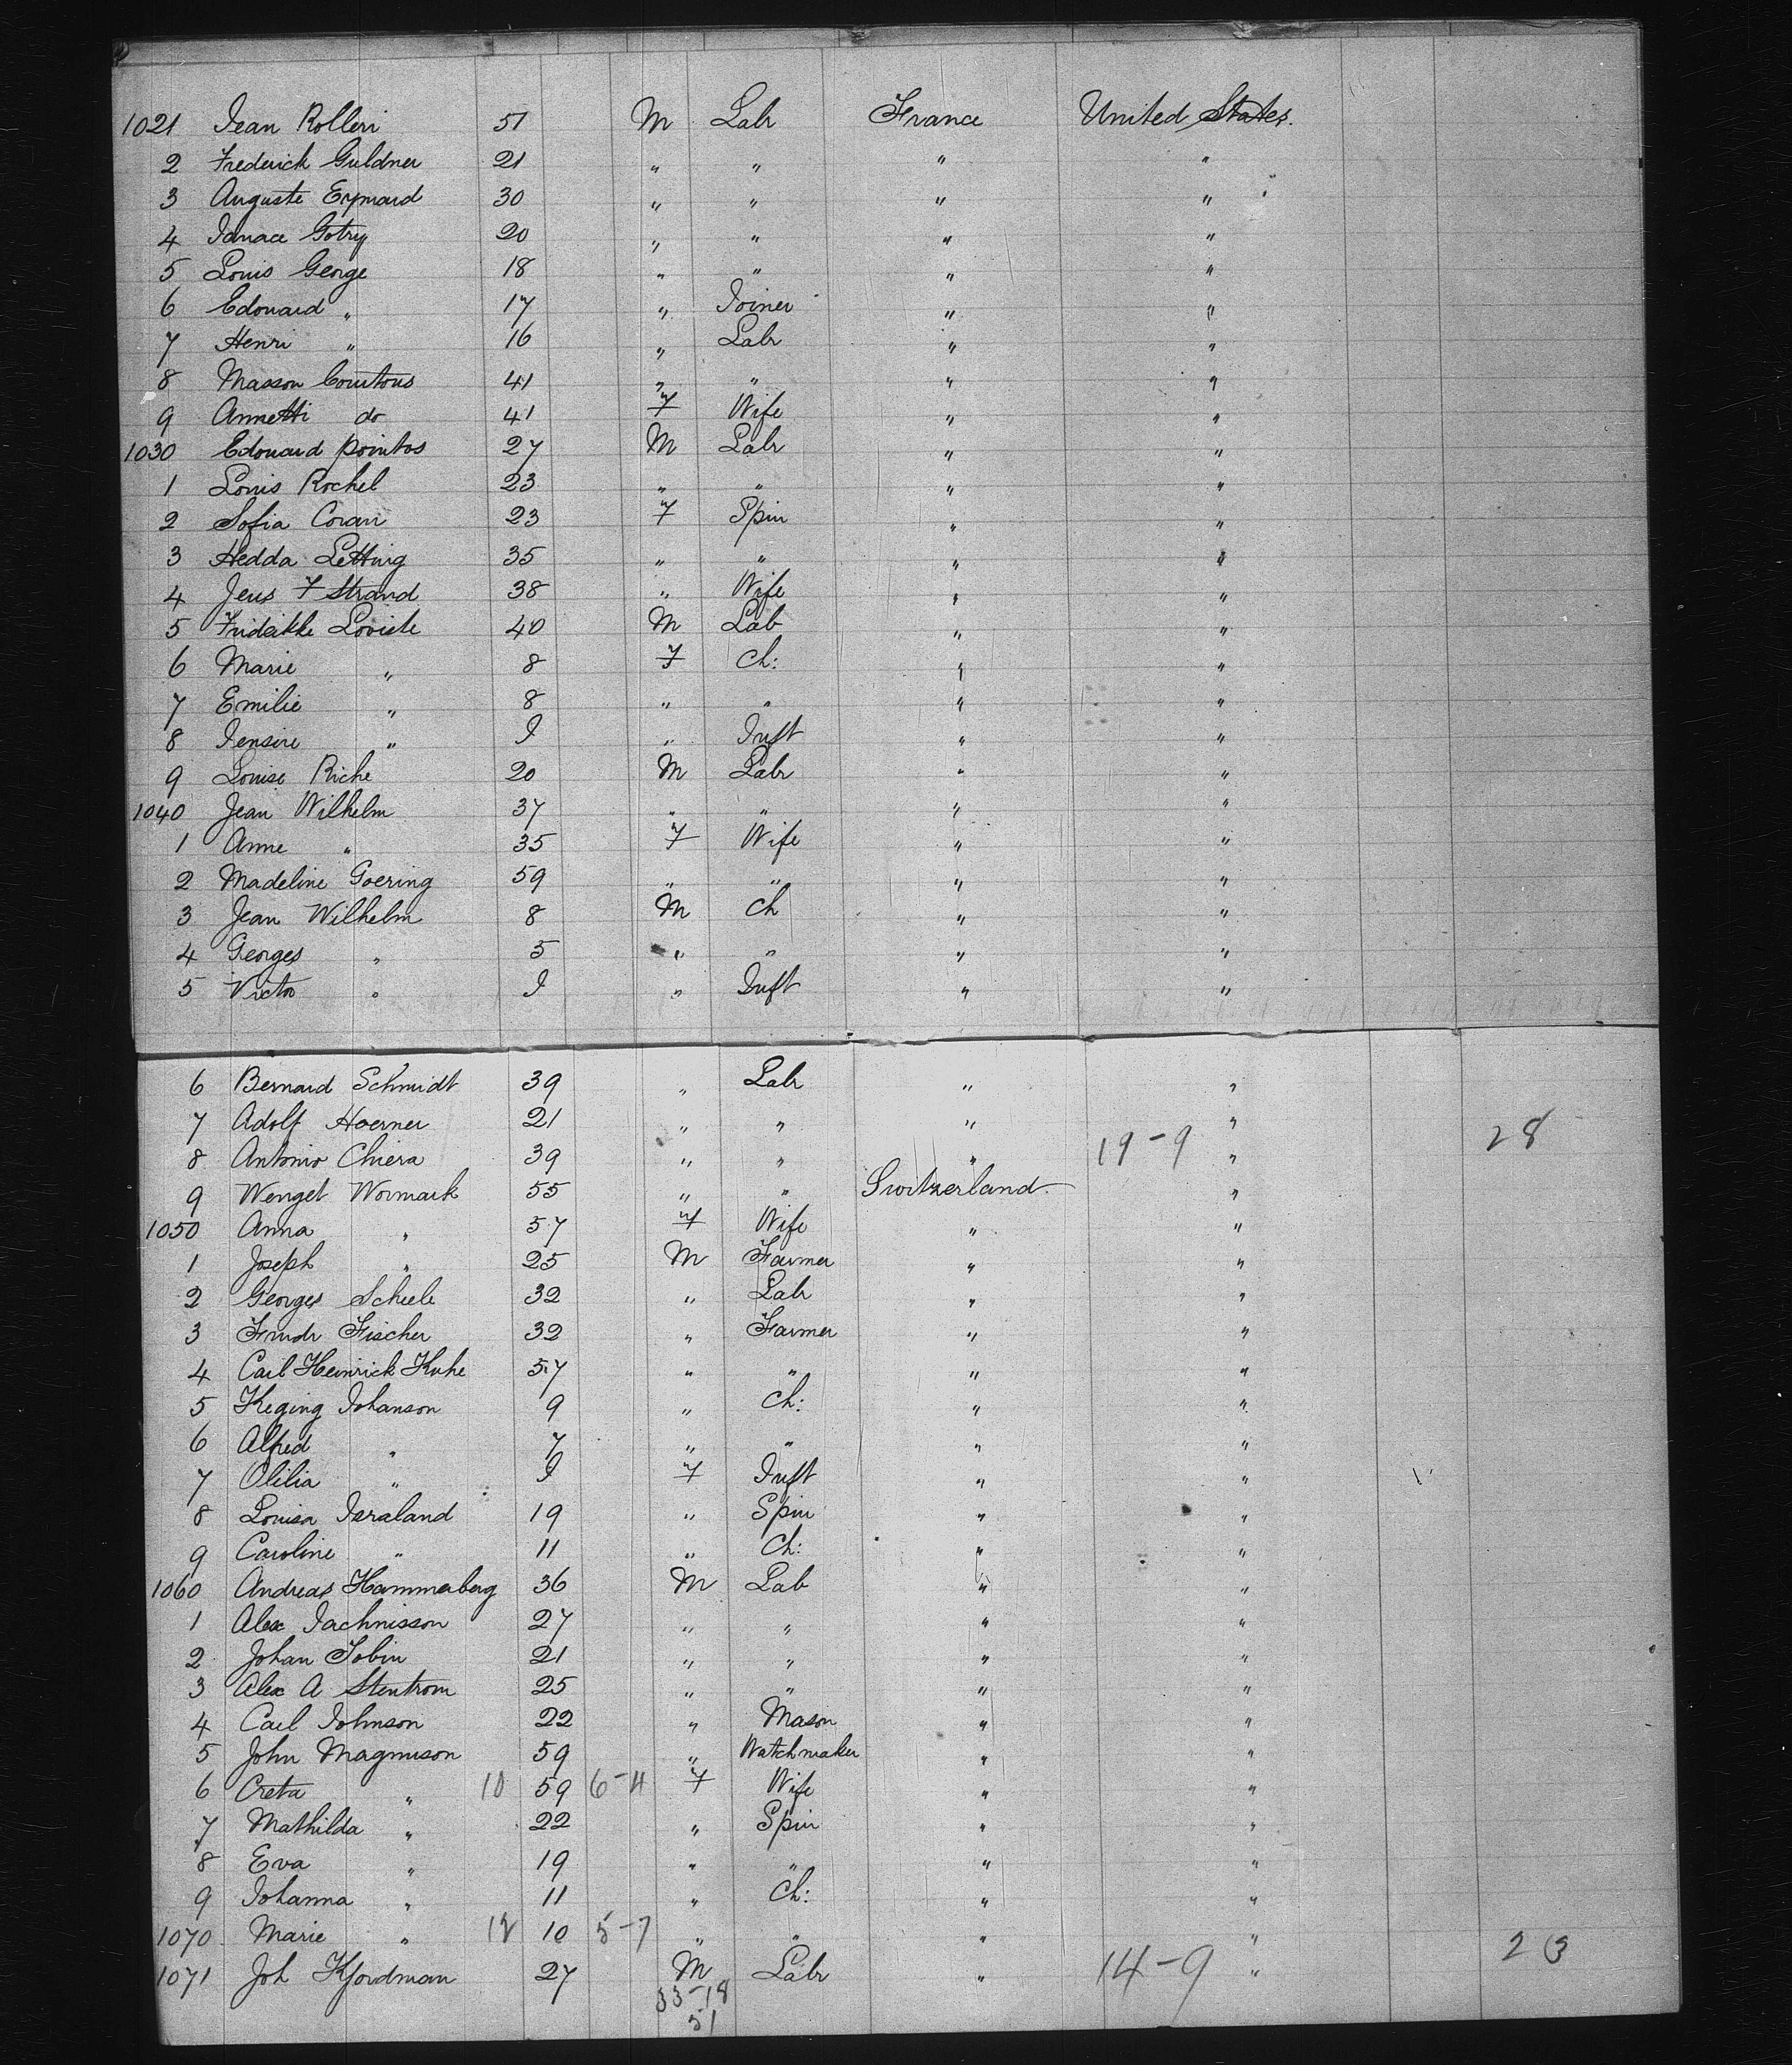 1021 Jean Rolleri 51 M Labr France United States.
2 Frederick Guldner 21 " " " "
3 Auguste Eymard 30 " " " "
4 Ignace Gotry 20 " " " "
5 Louis George 18 " " " "
6 Edouard " 17 " Joiner " "
7 Henri " 16 " Labr " "
8 Masson Courtous 41 " " " "
9 Annetti do 41 F Wife " "
1030 Edouard Pointos 27 M Labr " "
1 Louis Rochel 23 " " " "
2 Sofia Coran 23 F Spin " "
3 Hedda Letting 35 " " " "
4 Jens F Strand 38 " Wife " "
5 Fridrikke Loviste 40 M Lab " "
6 Marie " 8 F Ch: " "
7 Emilie " 8 " " " "
8 Jensire " I " Inft " "
9 Louise Riche 20 M Labr " "
1040 Jean Wilhelm 37 " " " "
1 Anne " 35 F Wife " "
2 Madeline Goering 59 " " " "
3 Jean Wilhelm 8 M Ch " "
4 Georges " 5 " " " "
5 Victor " I " Inft " "
6 Bernard Schmidt 39 " Labr " "
7 Adolf Hoerner 21 " " " "
8 Antonio Chiera 39 " " " 19-9 " 28
9 Wenget Wormark 55 " " Switzerland "
1050 Anna " 57 F Wife " "
1 Joseph " 25 M Farmer " "
2 Georges Scheele 32 " Labr " "
3 Friedr Fischer 32 " Farmer " "
4 Carl Heinrick Kuhe 57 " " " "
5 Keging Johanson 9 " Ch: " "
6 Alfred " 7 " " " "
7 Olilia " I F Inft " "
8 Louisa Israland 19 " Spin " "
9 Caroline " 11 " Ch: " "
1060 Andreas Hammerberg 36 M Lab " "
1 Alex Jachnisson 27 " " " "
2 Johan Tobin 21 " " " "
3 Alex A Stentrom 25 " " " "
4 Carl Johnson 22 " Mason " "
5 John Magnuson 59 " Watchmaker " "
6 Creta " 10 59 6-4 F Wife " "
7 Mathilda " 22 " Spin " "
8 Eva " 19 " " " "
9 Johanna " 11 " Ch: " "
1070 Marie " 12 10 5-7 " " " "
1071 Joh Kjordman 27 M Labr " 14-9 " 23
33-18
51